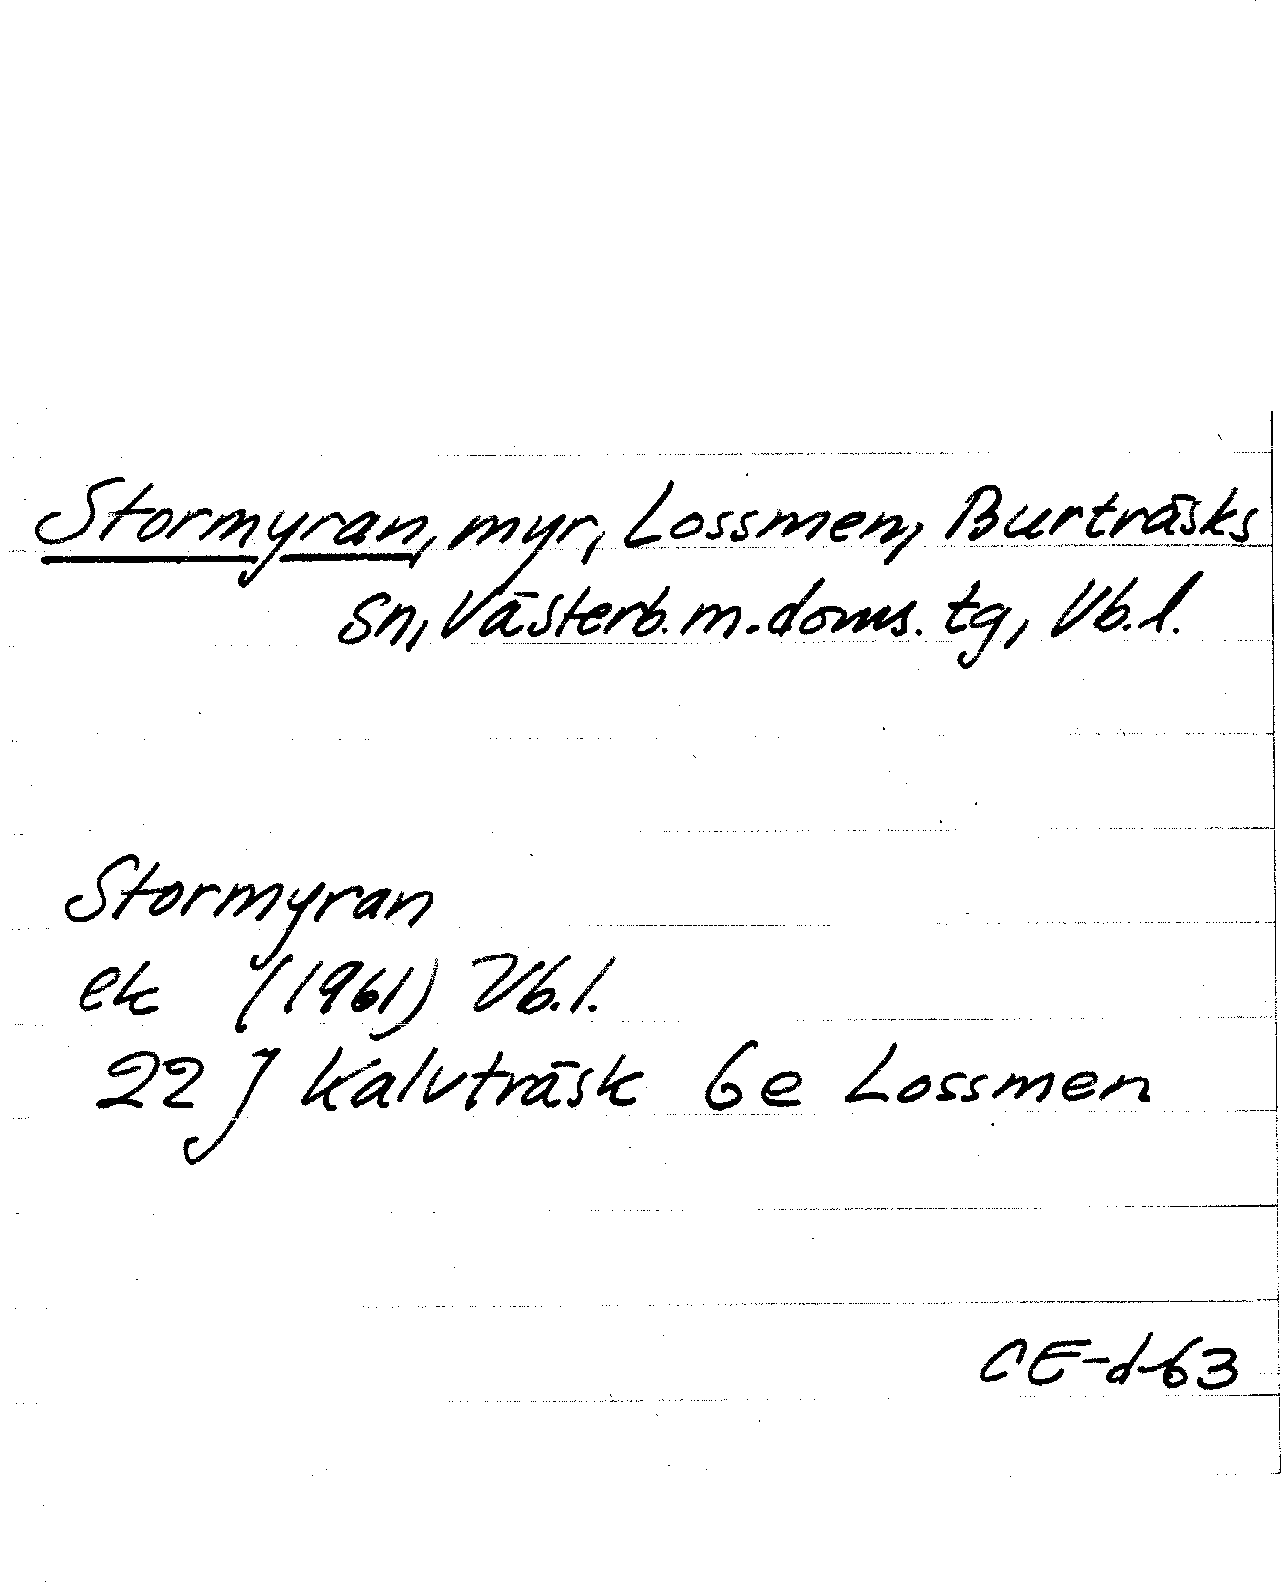 Stormyran, myr, Lossmen, Burträsks
sn, Västerb. m. doms. tg, Vb. l.
Stormyran
ek (1961) Vb. l.
22 J Kalvträsk 6e Lossmen
CE-d-63